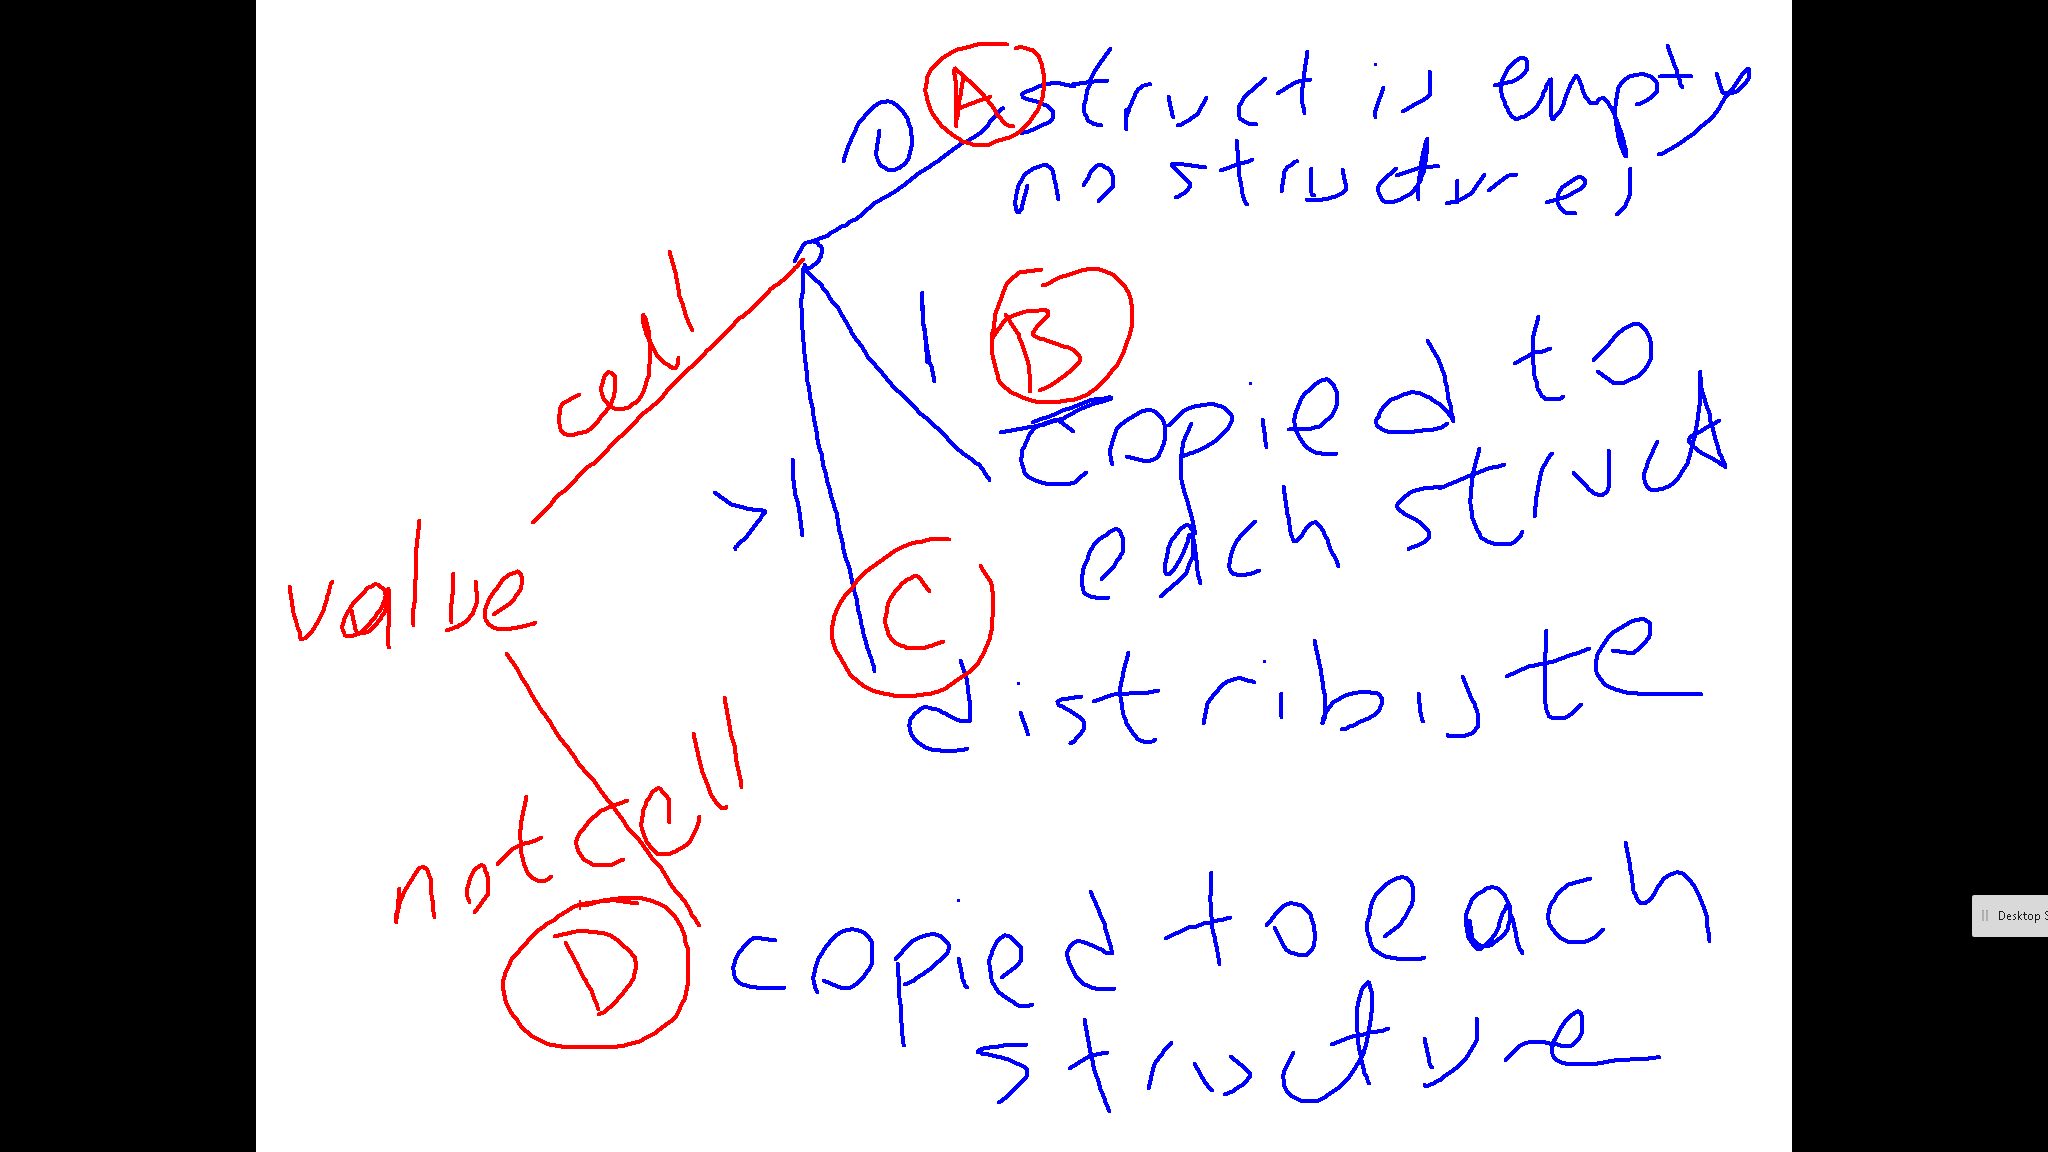 0 A struct is empty
no structures
cell
1 B
copied to
each struct
>1
C
distribute
value
not cell
D copied to each
structure
Desktop S